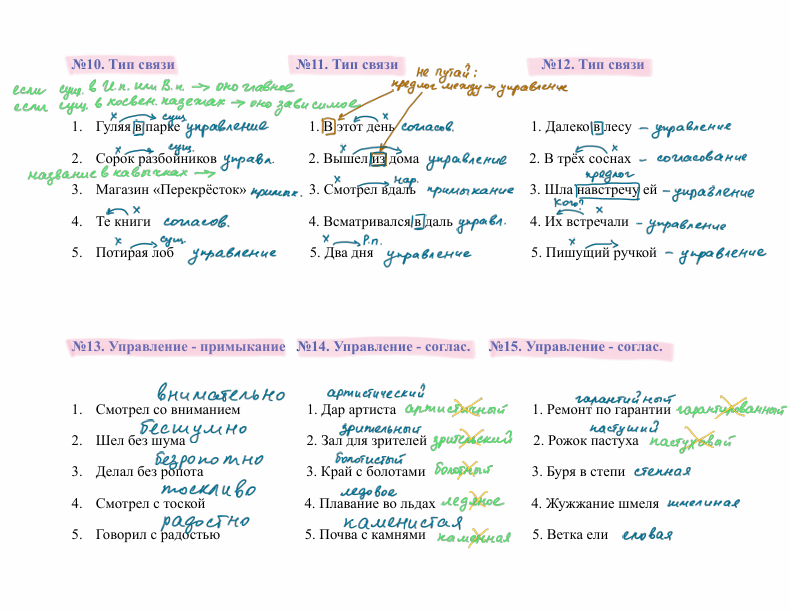 №10. Тип связи
если сущ. в И.п. или В.п. → оно главное
если сущ. в косвен. падежах → оно зависимое
x сущ.
1. Гуляя в парке управление
x сущ.
2. Сорок разбойников управл.
название в кавычках →
3. Магазин «Перекрёсток» примык.
x
4. Те книги согласов.
x сущ.
5. Потирая лоб управление
№11. Тип связи
не путай:
предлог между → управление
x
1. В этот день согласов.
x
2. Вышел из дома управление
x нар.
3. Смотрел вдаль примыкание
4. Всматривался в даль управл.
x Р.п.
5. Два дня управление
№12. Тип связи
1. Далеко в лесу – управление
x
2. В трёх соснах – согласование
предлог
3. Шла навстречу ей – управление
кого? x
4. Их встречали – управление
x
5. Пишущий ручкой – управление
№13. Управление - примыкание
внимательно
1. Смотрел со вниманием
бесшумно
2. Шел без шума
безропотно
3. Делал без ропота
тоскливо
4. Смотрел с тоской
радостно
5. Говорил с радостью
№14. Управление - соглас.
артистический
1. Дар артиста артистичный
зрительный
2. Зал для зрителей зрительский
болотистый
3. Край с болотами болотный
ледовое
4. Плавание во льдах ледяное
каменистая
5. Почва с камнями каменная
№15. Управление - соглас.
гарантийный
1. Ремонт по гарантии гарантированный
пастуший
2. Рожок пастуха пастуховый
3. Буря в степи степная
4. Жужжание шмеля шмелиная
5. Ветка ели еловая